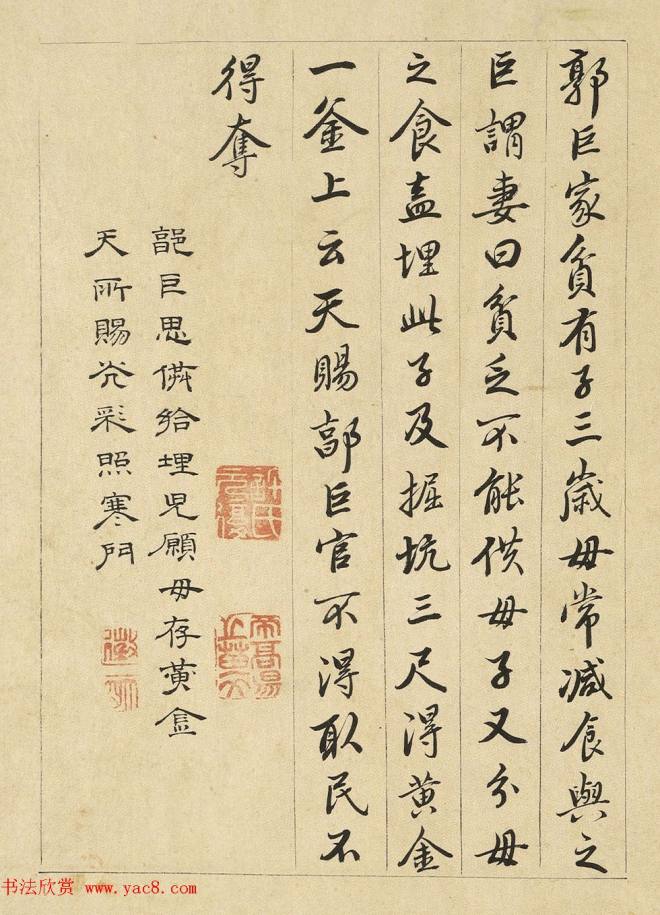 郭巨家貧有子三歲母常減食與之
巨謂妻曰貧乏不能供母子又分母
之食盍埋此子及掘坑三尺得黄金
一釜上云天賜郭巨官不得取民不
得奪
郭巨思供給埋兒願母存黄金
天所賜光彩照寒門
书法欣赏 www.yac8.com